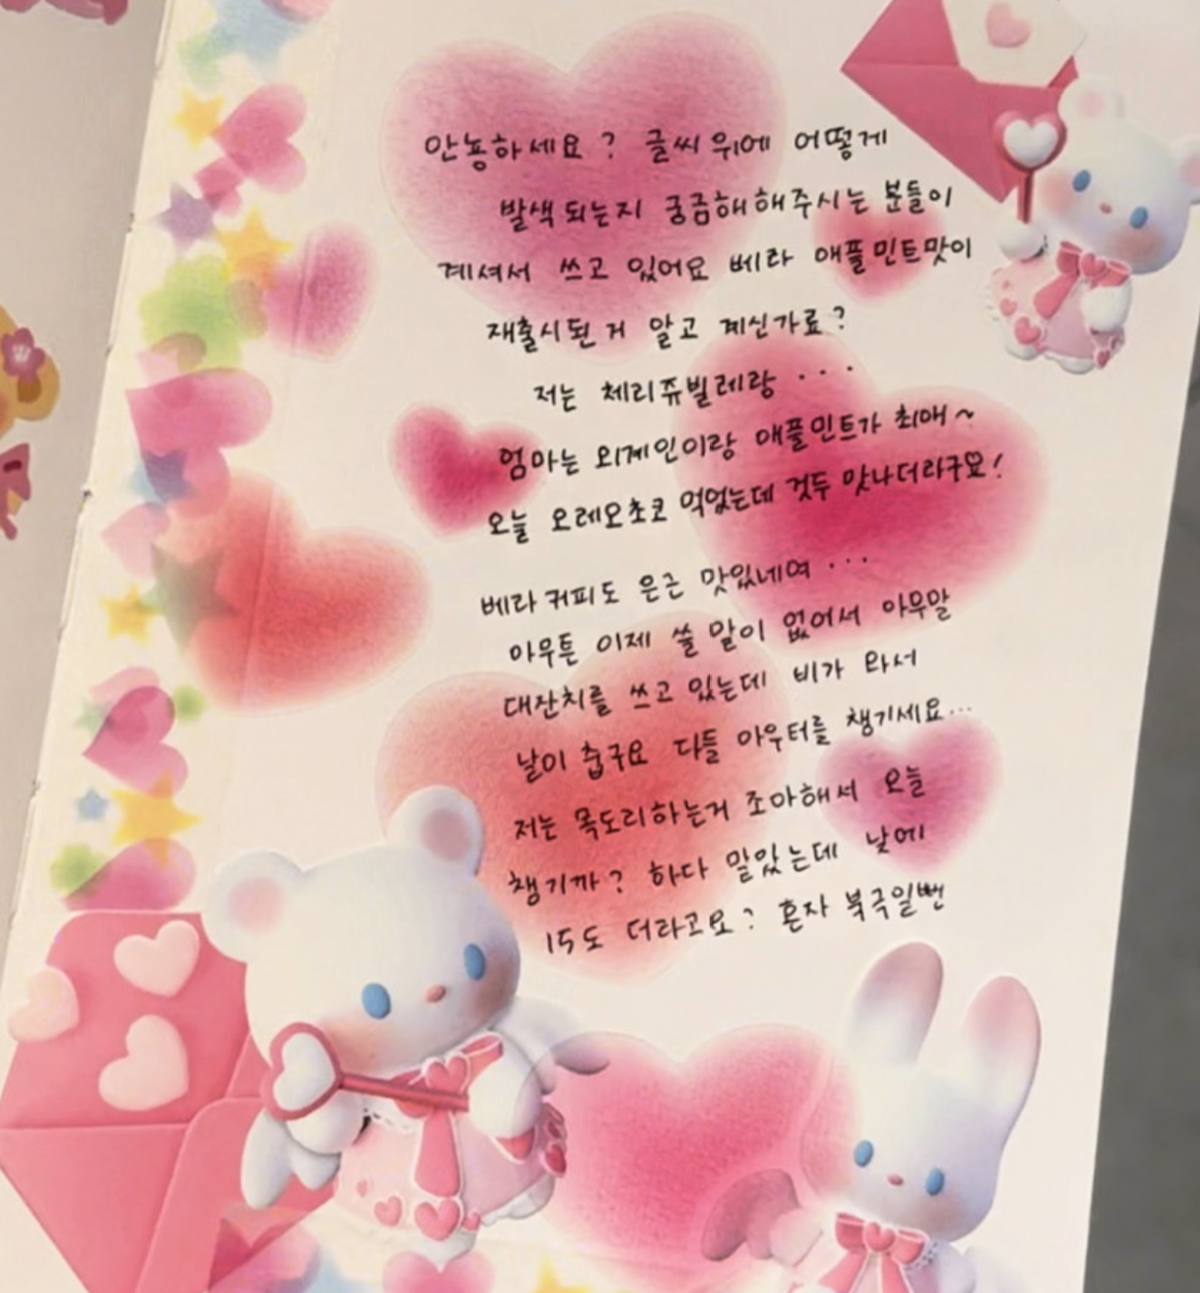 안뇽하세요? 글씨 위에 어떻게
발색되는지 궁금해해주시는 분들이
계셔서 쓰고 있어요 베라 애플민트맛이
재출시된 거 알고 계신가료?
저는 체리쥬빌레랑 ...
엄마는 외계인이랑 애플민트가 최애~
오늘 오레오초코 먹었는데 것두 맛나더라구요!
베라커피도 은근 맛있네여 ...
아무튼 이제 쓸 말이 없어서 아무말
대잔치를 쓰고 있는데 비가 와서
날이 춥구요 다들 아우터를 챙기세요...
저는 목도리하는거 조아해서 오늘
챙기까? 하다 말았는데 낮에
15도 더라고요? 혼자 북극일뻔